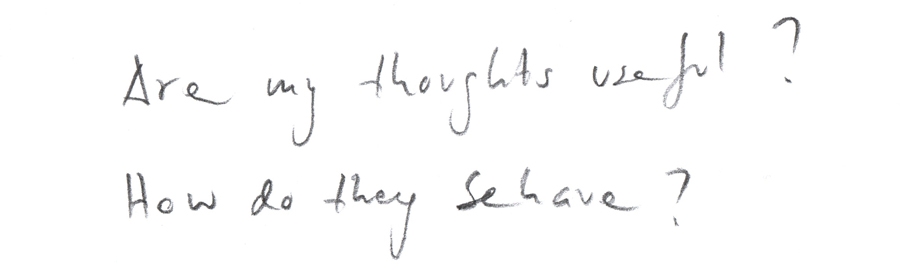 Are my thoughts useful ?
How do they behave ?